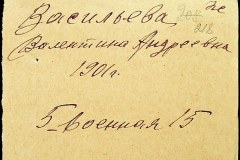 Васильева
Валентина Андреевна
1901г.
5-Военная 15